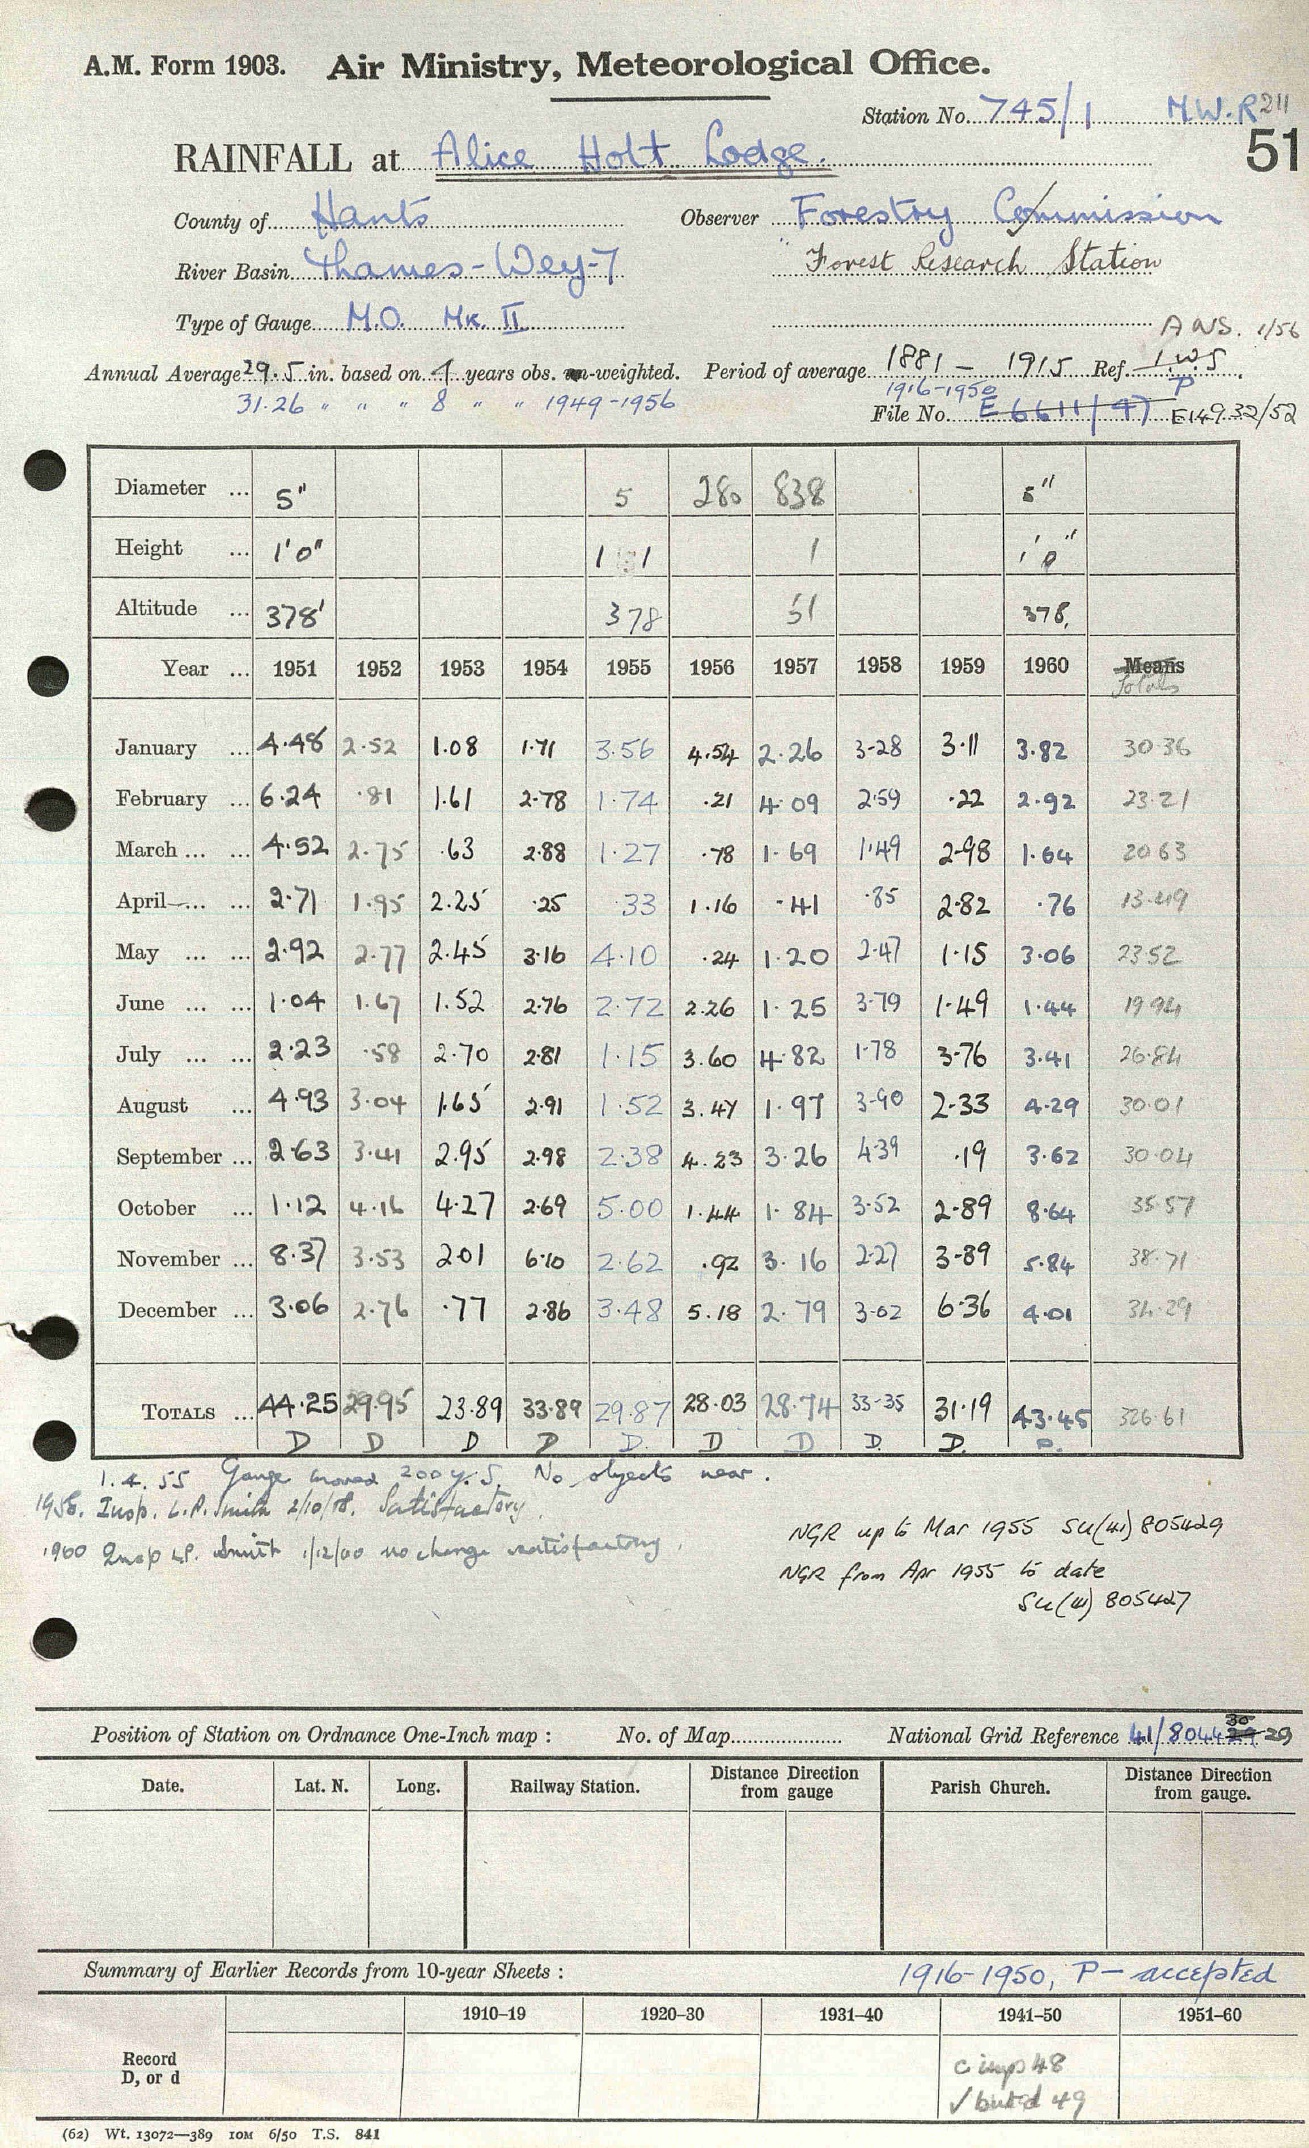 A.M. Form 1903. Air Ministry, Meteorological Office.
Station No. 745/1 M.W.R 211
51
RAINFALL at Alice Holt Lodge.
County of Hants Observer Forestry Commission
River Basin Thames-Wey-7 " Forest Research Station
Type of Gauge M.O. Mk. II
A N S. 1/56
Annual Average 29.5 in. based on 4 years obs. un-weighted. Period of average 1881 - 1915 Ref. I.W.S
31.26 " " " 8 " " 1949-1956 1916-1950 P
File No. E 6611/47 E14932/52
Diameter ... 5" 5 280 838 5"
Height ... 1'0" 1 1 1 1'0"
Altitude ... 378' 378 51 378,
Year ... 1951 1952 1953 1954 1955 1956 1957 1958 1959 1960 Means
Totals
January ... 4.48 2.52 1.08 1.71 3.56 4.54 2.26 3.28 3.11 3.82 30.36
February ... 6.24 .81 1.61 2.78 1.74 .21 4.09 2.59 .22 2.92 23.21
March ... ... 4.52 2.75 .63 2.88 1.27 .78 1.69 1.49 2.98 1.64 20.63
April ... ... 2.71 1.95 2.25 .25 .33 1.16 .41 .85 2.82 .76 13.49
May ... ... 2.92 2.77 2.45 3.16 4.10 .24 1.20 2.47 1.15 3.06 23.52
June ... ... 1.04 1.67 1.52 2.76 2.72 2.26 1.25 3.79 1.49 1.44 19.94
July ... ... 2.23 .58 2.70 2.81 1.15 3.60 4.82 1.78 3.76 3.41 26.84
August ... 4.93 3.04 1.65 2.91 1.52 3.47 1.97 3.90 2.33 4.29 30.01
September ... 2.63 3.41 2.95 2.98 2.38 4.23 3.26 4.39 .19 3.62 30.04
October ... 1.12 4.16 4.27 2.69 5.00 1.44 1.84 3.52 2.89 8.64 35.57
November ... 8.37 3.53 2.01 6.10 2.62 .92 3.16 2.27 3.89 5.84 38.71
December ... 3.06 2.76 .77 2.86 3.48 5.18 2.79 3.02 6.36 4.01 34.29
TOTALS ... 44.25 29.95 23.89 33.89 29.87 28.03 28.74 33.35 31.19 43.45 326.61
D D D D D. D D D. D. D.
1.4.55 Gauge moved 200 y. S. No objects near.
1958. Insp. L.P. Smith 2/10/58. Satisfactory.
1960 Insp LP. Smith 1/12/60 no change satisfactory.
NGR up to Mar 1955 SU(41) 805429
NGR from Apr 1955 to date
SU(41) 805427
Position of Station on Ordnance One-Inch map : No. of Map National Grid Reference 41/804429 30 29
Date. Lat. N. Long. Railway Station. Distance Direction from gauge Parish Church. Distance Direction from gauge.
Summary of Earlier Records from 10-year Sheets : 1916-1950, P - accepted
1910-19 1920-30 1931-40 1941-50 1951-60
Record
D, or d
48
49
(62) Wt. 13072—389 10M 6/50 T.S. 841